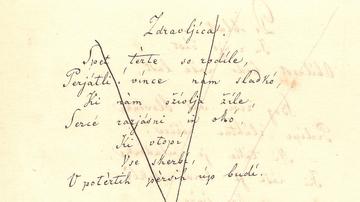 Zdravljíca.
Spet tèrte so rodíle,
Perjátli! vínce nam sladkó,
Ki nam ožívlja žíle,
Sercé razjásni in okó,
Ki otopí
Vse skerbí,
V potèrtih pèrsih úp budí.